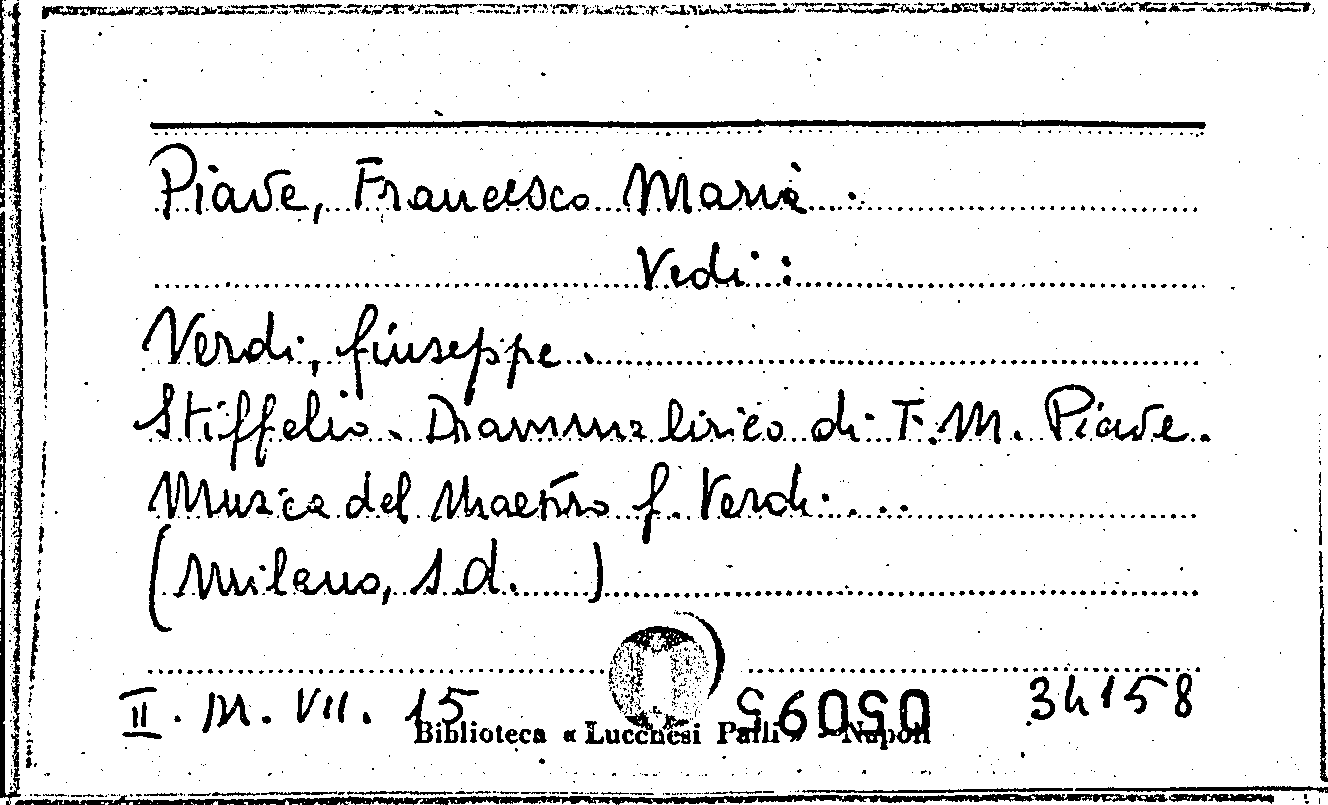 Piave, Francesco Maria.
Vedi:
Verdi, Giuseppe.
Stiffelio. Dramma lirico di F. M. Piave.
Musica del Maestro G. Verdi...
(Milano, s.d. )
II. M. VII. 15 34158
Biblioteca « Lucchesi Palli » - Napoli